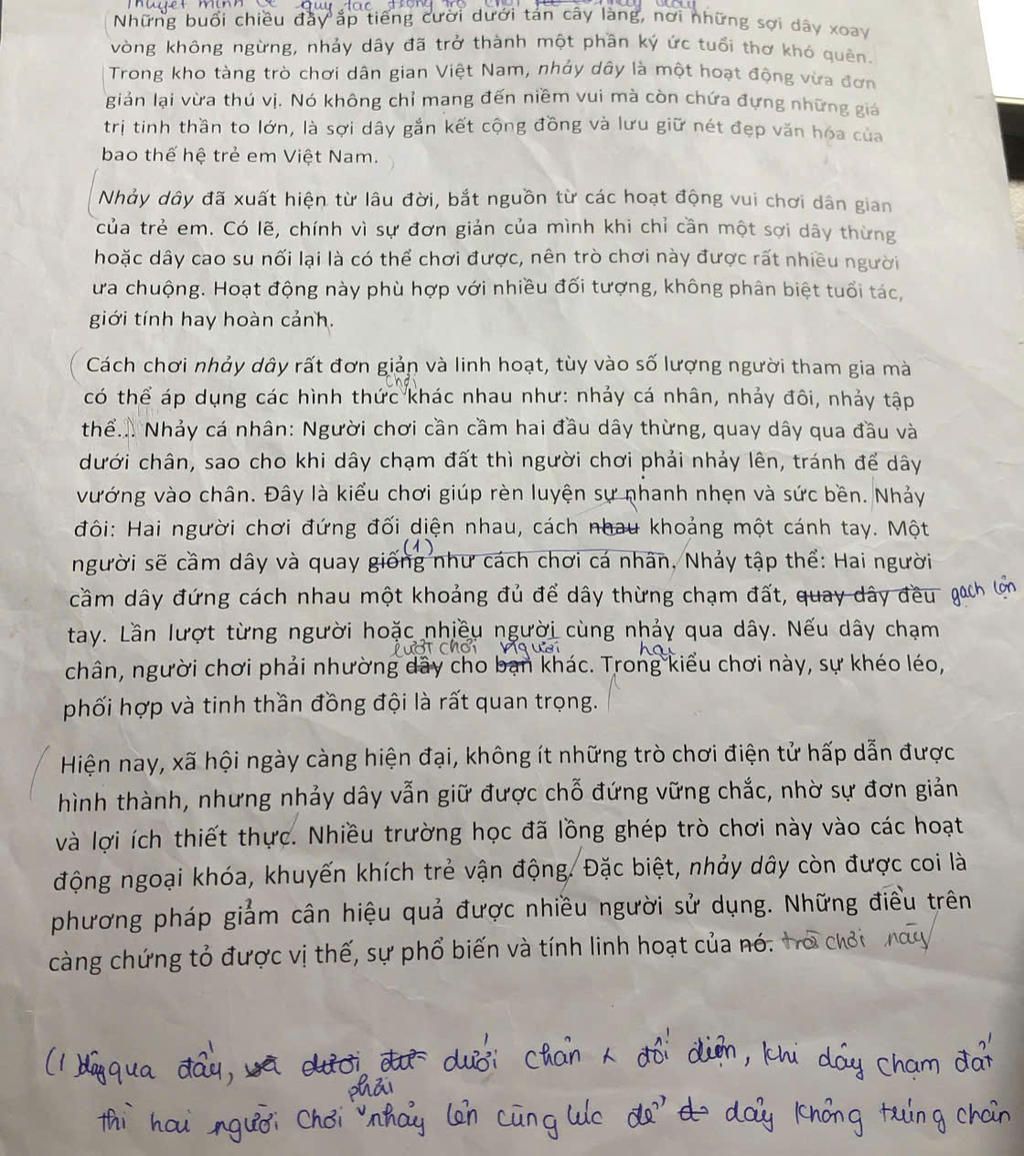 Thuyết minh về quy tắc trong trò chơi nhảy dây
Những buổi chiều đầy ắp tiếng cười dưới tán cây làng, nơi những sợi dây xoay
vòng không ngừng, nhảy dây đã trở thành một phần ký ức tuổi thơ khó quên.
Trong kho tàng trò chơi dân gian Việt Nam, nhảy dây là một hoạt động vừa đơn
giản lại vừa thú vị. Nó không chỉ mang đến niềm vui mà còn chứa đựng những giá
trị tinh thần to lớn, là sợi dây gắn kết cộng đồng và lưu giữ nét đẹp văn hóa của
bao thế hệ trẻ em Việt Nam.
Nhảy dây đã xuất hiện từ lâu đời, bắt nguồn từ các hoạt động vui chơi dân gian
của trẻ em. Có lẽ, chính vì sự đơn giản của mình khi chỉ cần một sợi dây thừng
hoặc dây cao su nối lại là có thể chơi được, nên trò chơi này được rất nhiều người
ưa chuộng. Hoạt động này phù hợp với nhiều đối tượng, không phân biệt tuổi tác,
giới tính hay hoàn cảnh.
Cách chơi nhảy dây rất đơn giản và linh hoạt, tùy vào số lượng người tham gia mà
chơi
có thể áp dụng các hình thức khác nhau như: nhảy cá nhân, nhảy đôi, nhảy tập
thể... Nhảy cá nhân: Người chơi cần cầm hai đầu dây thừng, quay dây qua đầu và
dưới chân, sao cho khi dây chạm đất thì người chơi phải nhảy lên, tránh để dây
vướng vào chân. Đây là kiểu chơi giúp rèn luyện sự nhanh nhẹn và sức bền. Nhảy
đôi: Hai người chơi đứng đối diện nhau, cách nhau khoảng một cánh tay. Một
(1)
người sẽ cầm dây và quay giống như cách chơi cá nhân. Nhảy tập thể: Hai người
cầm dây đứng cách nhau một khoảng đủ để dây thừng chạm đất, quay dây đều gạch lộn
tay. Lần lượt từng người hoặc nhiều người cùng nhảy qua dây. Nếu dây chạm
lượt chơi người hai
chân, người chơi phải nhường dây cho bạn khác. Trong kiểu chơi này, sự khéo léo,
phối hợp và tinh thần đồng đội là rất quan trọng.
Hiện nay, xã hội ngày càng hiện đại, không ít những trò chơi điện tử hấp dẫn được
hình thành, nhưng nhảy dây vẫn giữ được chỗ đứng vững chắc, nhờ sự đơn giản
và lợi ích thiết thực. Nhiều trường học đã lồng ghép trò chơi này vào các hoạt
động ngoại khóa, khuyến khích trẻ vận động. Đặc biệt, nhảy dây còn được coi là
phương pháp giảm cân hiệu quả được nhiều người sử dụng. Những điều trên
càng chứng tỏ được vị thế, sự phổ biến và tính linh hoạt của nó. trò chơi này
(1) dây qua đầu, và dưới dưới chân đối diện, khi dây chạm đất
phải
thì hai người chơi nhảy lên cùng lúc để dây không trúng chân